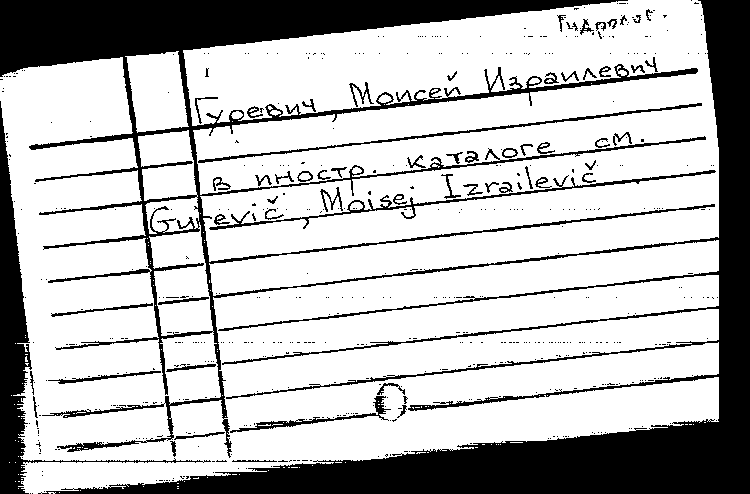 Гидролог.
Гуревич, Моисей Израилевич
в иностр. каталоге см.
Gurevič, Moisej Izrailevič